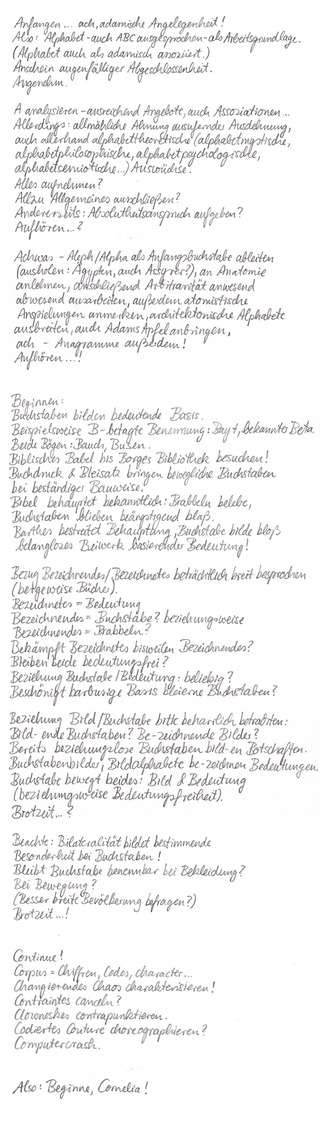 Anfangen ... ach, adamische Angelegenheit!
Also: Alphabet - auch ABC ausgesprochen - als Arbeitsgrundlage.
(Alphabet auch als adamisch anoziert.)
Anschein augenfälliger Abgeschlossenheit.
Angenehm.
A analysieren - ausreichend Angebote, auch Assoziationen ...
Allerdings: allmähliche Ahnung ausufernder Ausdehnung,
auch allerhand alphabettheoretische (alphabetmystische,
alphabetphilosophische, alphabetpsychologische,
alphabetsemiotische...) Auswüchse.
Alles aufnehmen?
Allzu Allgemeines ausschließen?
Andererseits: Absolutheitsanspruch aufgeben?
Aufhören...?
Achwas - Aleph/Alpha als Anfangsbuchstabe ableiten
(ausholen: Ägypten, auch Assyrer?), an Anatomie
anlehnen, anschließend Arbitrarität anwesend
abwesend ausarbeiten, außerdem atomistische
Anspielungen anmerken, architektonische Alphabete
ausbreiten, auch Adams Apfel anbringen,
ach - Anagramme außerdem!
Aufhören...!!
Beginnen:
Buchstaben bilden bedeutende Basis.
Beispielsweise B - betagte Benennung: Bayt, bekanntes Beta.
Beide Bögen: Bauch, Busen.
Biblisches Babel bis Borges Bibliothek besuchen!
Buchdruck & Bleisatz bringen bewegliche Buchstaben
bei beständiger Bauweise.
Bibel behauptet bekanntlich: Brabbeln belebe,
Buchstaben blieben beängstigend blaß.
Barthes bestreitet Behauptung, Buchstabe bilde bloß
belangloses Beiwerk basierender Bedeutung!
Bezug Bezeichnendes/Bezeichnetes beträchtlich breit besprochen
(bergeweise Bücher).
Bezeichnetes = Bedeutung
Bezeichnendes = Buchstabe? beziehungsweise
Bezeichnendes = Brabbeln?
Bekämpft Bezeichnetes bisweilen Bezeichnendes?
Bleiben beide bedeutungsfrei?
Beziehung Buchstabe/Bedeutung: beliebig?
Beschönigt barbusige Basis bleierne Buchstaben?
Beziehung Bild/Buchstabe bitte beharrlich betrachten:
Bild-ende Buchstaben? Be-zeichnende Bilder?
Bereits beziehungslose Buchstaben bild-en Botschaften.
Buchstabenbilder, Bildalphabete be-zeichnen Bedeutungen.
Buchstabe bewegt beides: Bild & Bedeutung
(beziehungsweise Bedeutungsfreiheit).
Brotzeit...?
Beachte: Bilateralität bildet bestimmende
Besonderheit bei Buchstaben!
Bleibt Buchstabe benennbar bei Bekleidung?
Bei Bewegung?
(Besser breite Bevölkerung befragen?)
Brotzeit...!
Continue!
Corpus = Chiffren, Codes, character...
Changierendes Chaos charakterisieren!
Contraintes canceln?
Clowneskes contrapunktieren.
Codiertes Couture choreographieren?
Computercrash.
Also: Beginne, Cornelia!